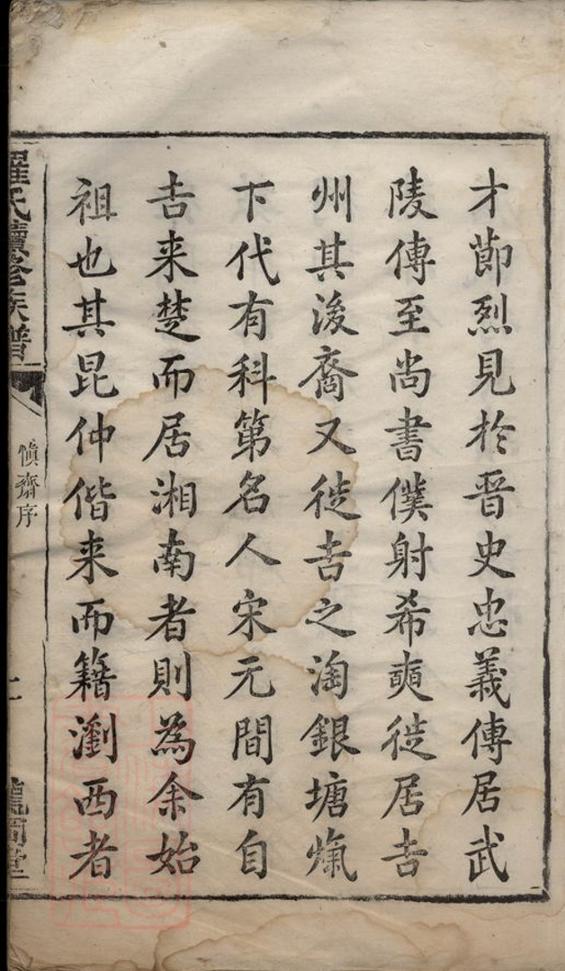 才節烈見於晋史忠義傳居武
陵傳至尚書僕射希奭徙居吉
州其後裔又徙吉之淘銀塘煱
下代有科第名人宋元間有自
吉来楚而居湘南者則為余始
祖也其昆仲偕来而籍瀏西者
羅氏續修族譜
慎齋序